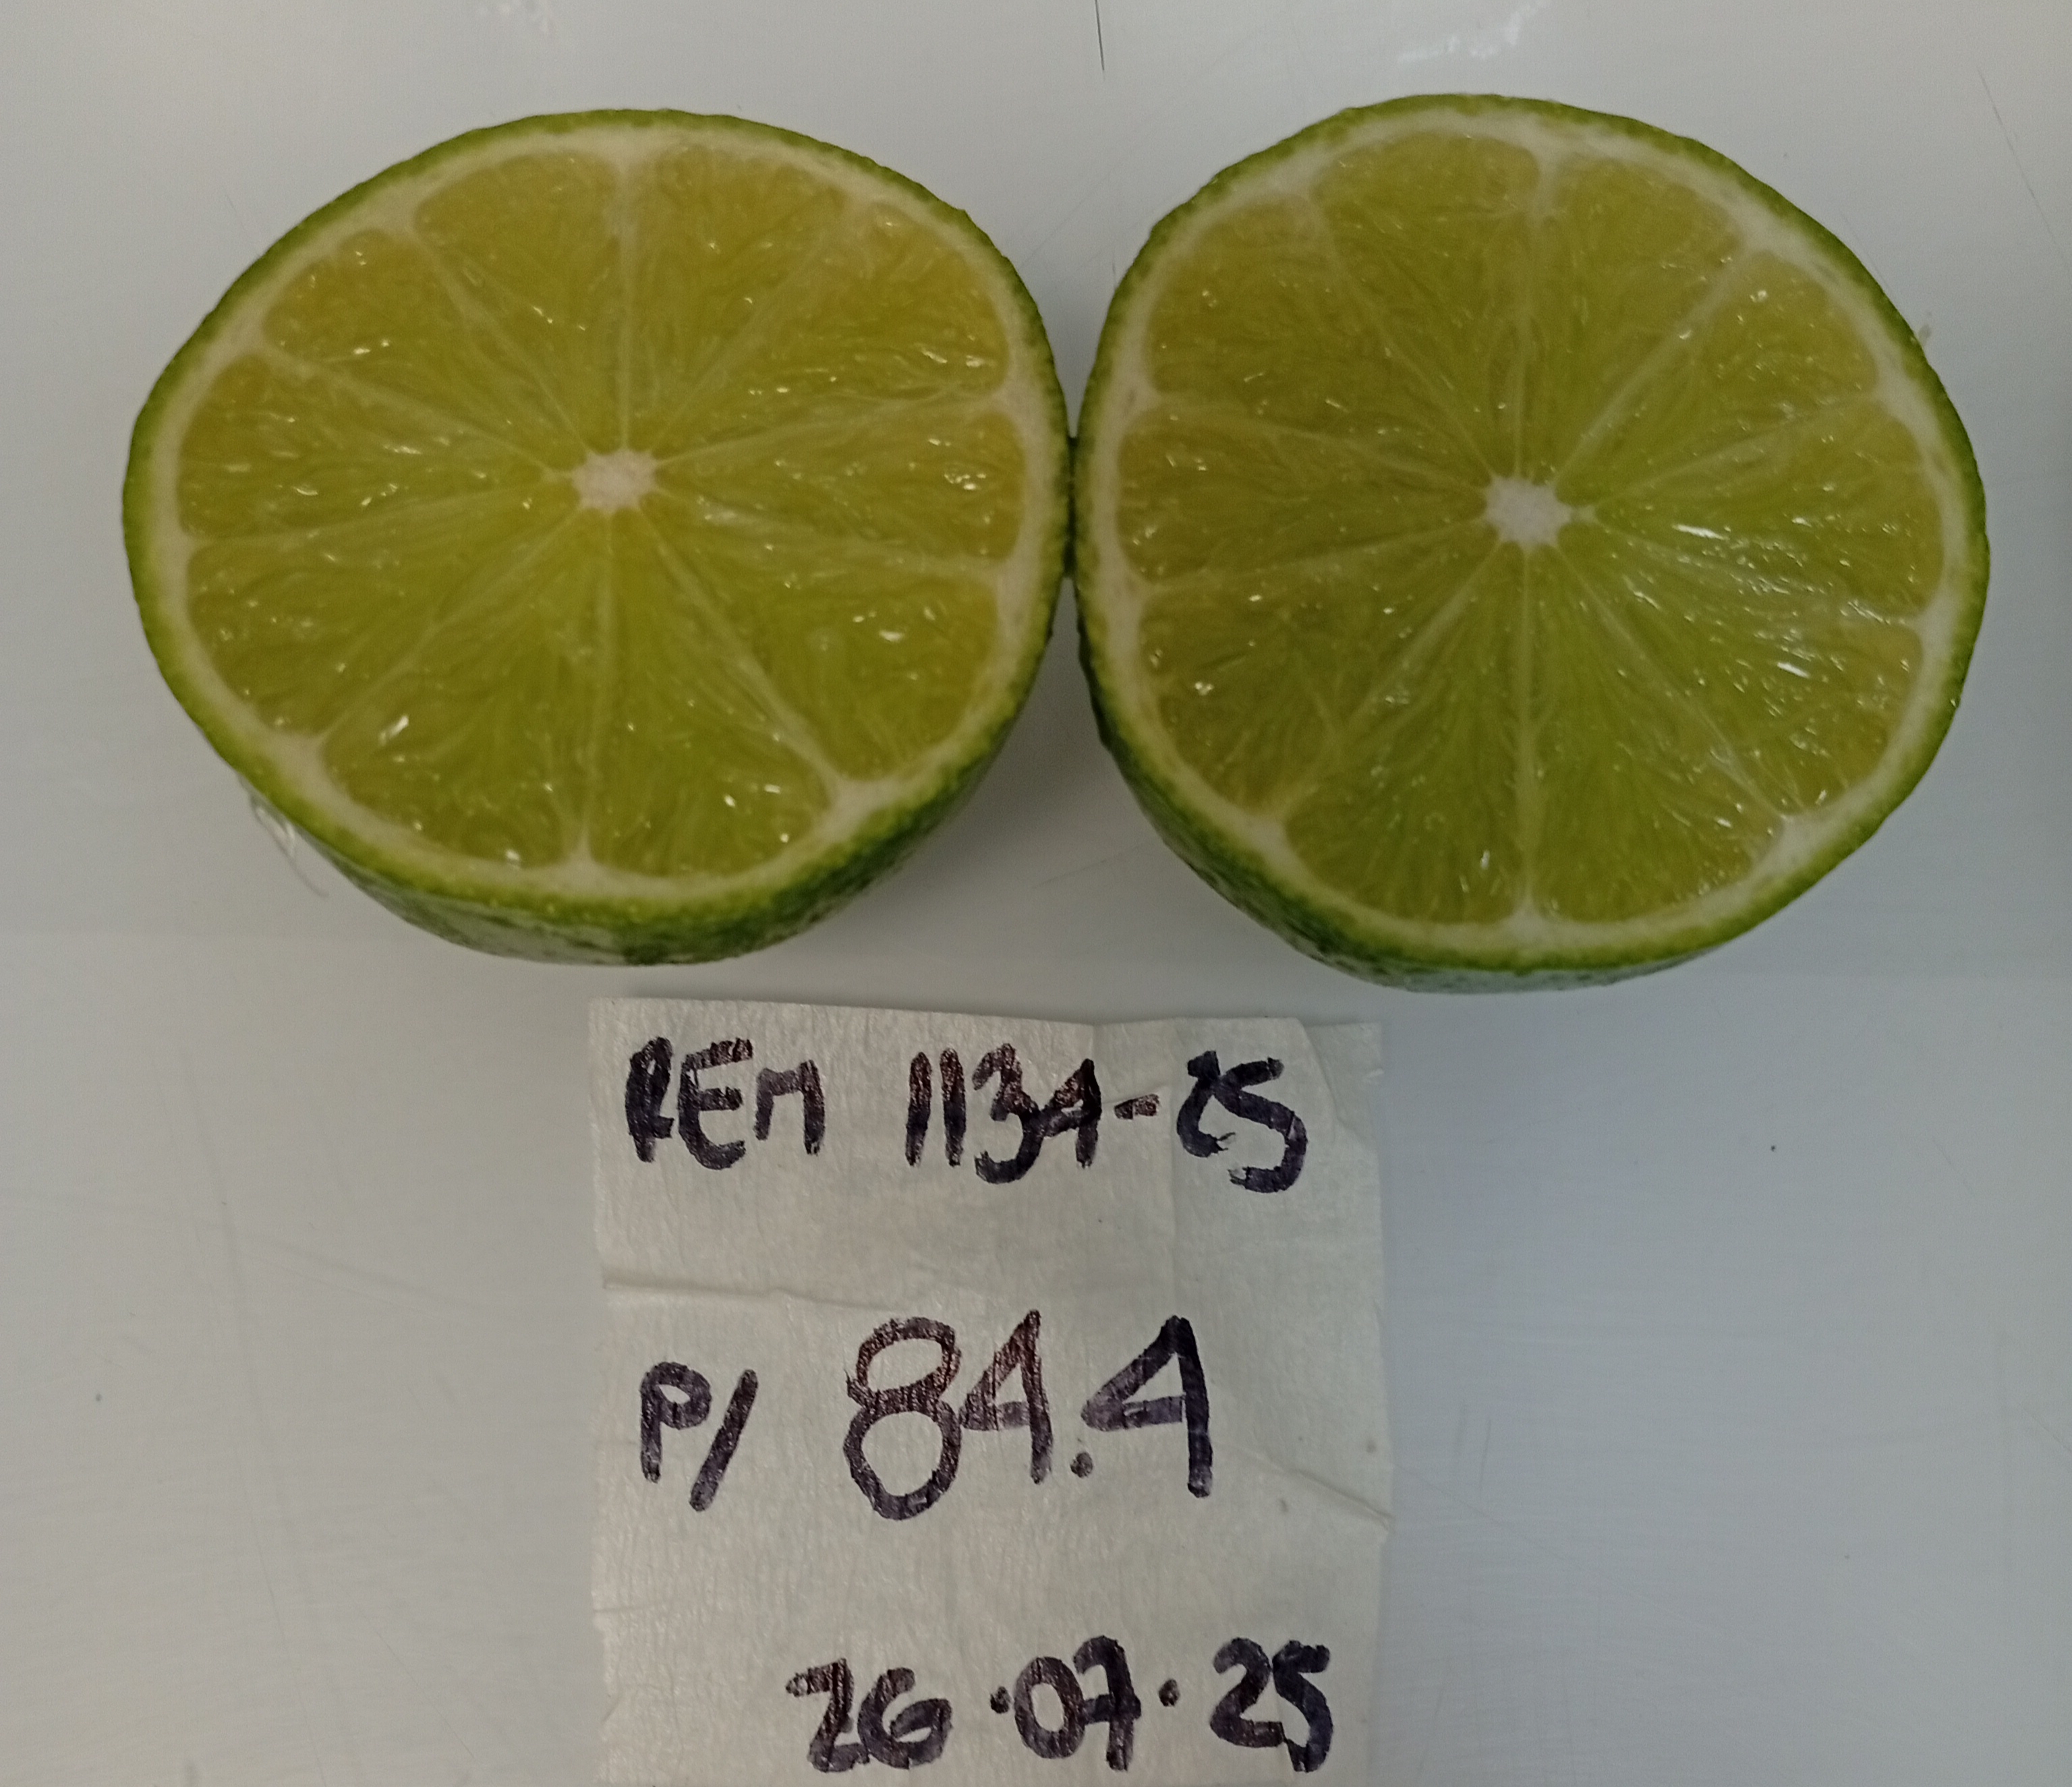 REM 1134-25
P/ 84.4
26.07.25